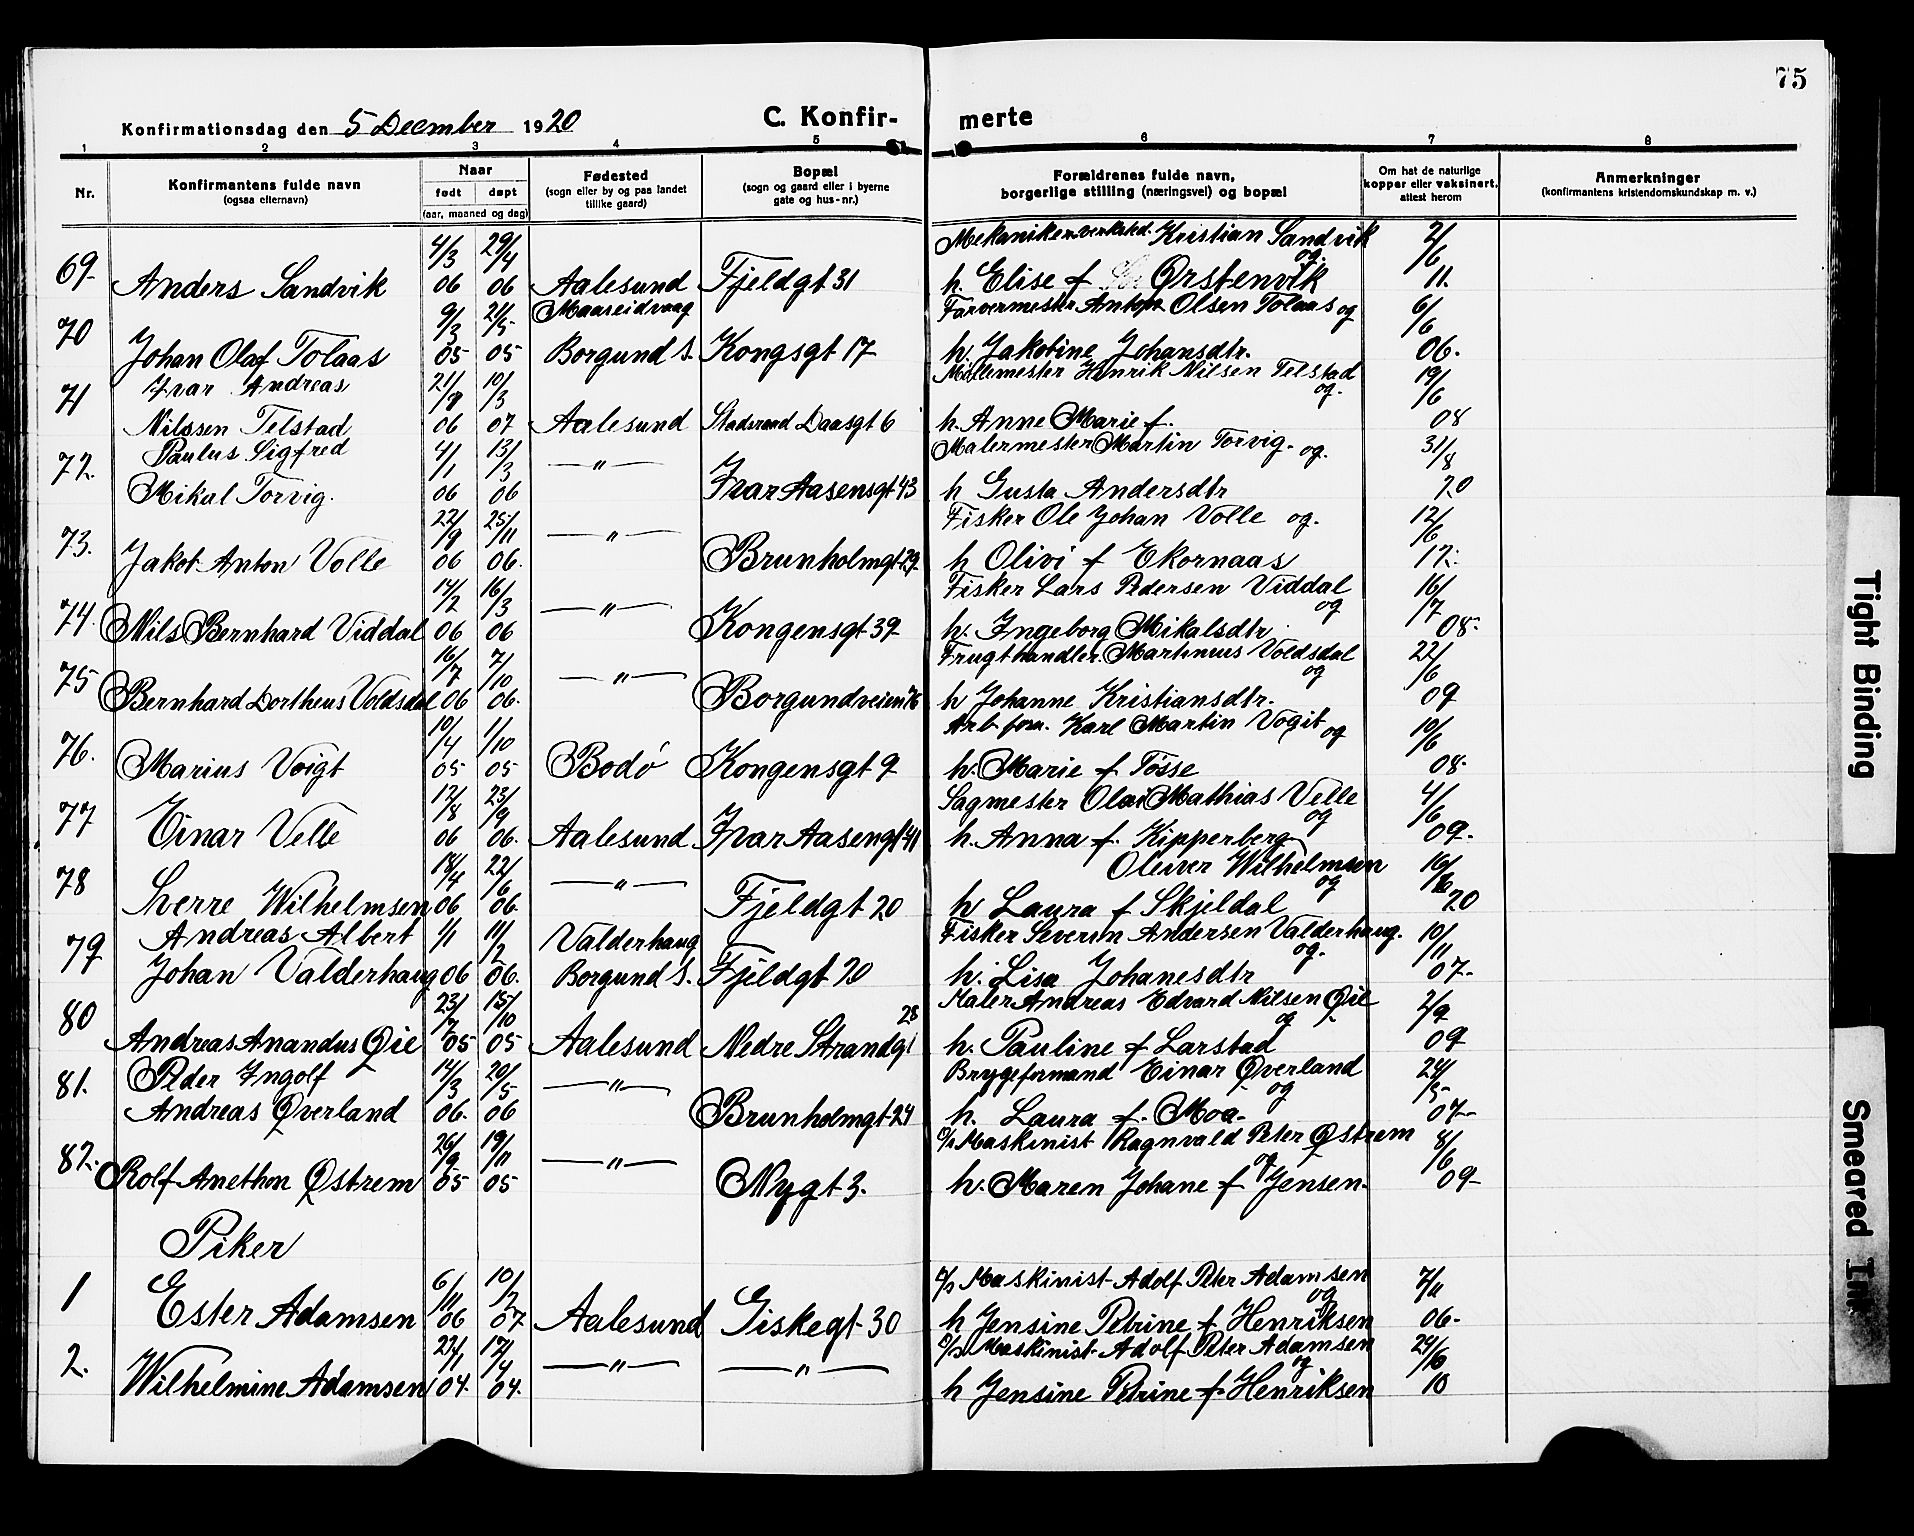 75
Konfirmationsdag den 5 December 1920
C. Konfir- merte
1 2 3 4 5 6 7 8
Nr.
Konfirmantens fulde navn
(ogsaa efternavn)
Naar
født døpt
(aar, maaned og dag)
Fødested
(sogn eller by og paa landet
tillike gaard)
Bopæl
(sogn og gaard eller i byerne
gate og hus-nr.)
Forældrenes fulde navn,
borgerlige stilling (næringsvei) og bopæl
Om hat de naturlige
kopper eller vaksinert,
attest herom
Anmerkninger
(konfirmantens kristendomskundskap m. v.)
4/3 29/4 Mekanikerverksted. Kristian Sandvik og. 2/6
69. Anders Sandvik 06 06 Aalesund Fjeldgt 31 h. Elise f Ørstenvik 11.
9/3 21/5 Maaseidvaag Farvermester Anton Olsen Tolaas og 6/6
70 Johan Olaf Tolaas 05 05 Borgund S. Kongsgt 17 h. Jakobine Johansdtr. 06.
Ivar Andreas 21/8 10/3 Malemester Henrik Nilsen Telstad og. 19/6
71 Nilssen Telstad 06 07 Aalesund Daasgt 6 h. Anne Marie f. 08
Paulus Sigfred 4/1 13/3 —"— Malermester Martin Torvig. og. 31/8
72. Mikal Torvig. 06 06 Ivar Aasensgt 43 h Gusta Andersdtr 20
22/9 25/11 —"— Fisker Ole Johan Volle og. 12/6
73. Jakob Anton Volle 06 06. Brunholmgt 29. h Olivi f Ekornaas 12.
14/2 16/3 —"— Fisker Lars Pedersen Viddal og 16/7
74. Nils Bernhard Viddal 06 06 Kongensgt 39 h. Ingeborg Mikalsdtr. 08.
16/7 7/10 —"— Frugthandler. Martinius Voldsdal og 22/6
75 Bernhard Dortheus Voldsdal 06 06. Borgundveien 76 h Johanne Kristiansdtr. 09
10/4 1/10 Arb. form. Karl Martin Vogit og 10/6
76. Marius Voigt 05 05 Bodø Kongensgt 9 h. Marie f Tösse 08.
12/8 23/9 Sagmester Olai Mathias Velle og 4/6
77 Einar Velle 06 06. Aalesund Ivar Aasengt 41 h. Anna f. Kipperberg 09.
18/4 22/6 —"— Oliver Wilhelmsen og 10/16
78 Sverre Wilhelmsen 06 06. Fjeldgt 20 h Laura f Skjeldal 20
Andreas Albert 1/1 11/2 Valderhaug Fisker Severin Andersen Valderhaug. og. 10/11
79 Johan Valderhaug 06 06. Borgund S. Fjeldgt 20 h. Lisa Johanesdtr 07.
23/7 15/10 28 Maler Andreas Edvard Nilsen Øie og 2/9
80 Andreas Anandus Øie 05 05 Aalesund Nedre Strandgt h. Pauline f Larstad 09
81. Peder Ingolf 14/3 20/5 —"— Bryggeformand Einar Øverland og 24/5
Andreas Øverland 06. 06 Brunholmgt 24 h. Laura f. Moa. 07
26/9 19/11 —"— Maskinist Ragnvald Peter Østrem og 8/6
82. Rolf Anethon Østrem 05 05 Nygt 3. h. Maren Johane f Jensen. 09
Piker
6/11 10/2 Maskinist Adolf Peter Adamsen og 7/11
1 Ester Adamsen 06 07 Aalesund Giskegt 30 h Jensine Petrine f Henriksen 06.
17/4 Maskinist Adolf Peter Adamsen og 24/6
2. Wilhelmine Adamsen 04. 04. —"— —"— h Jensine Petrine f Henriksen 10
Tight Binding
Smeared Ink